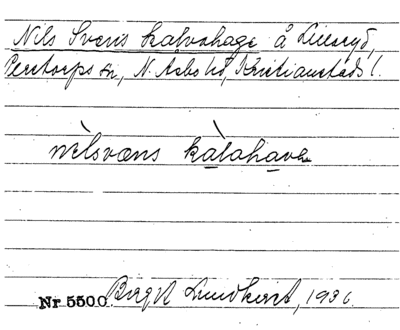 Nils Svens kalvahage å Lilleryd,
Perstorps sn, N. Åsbo hd, Kristianstads l.
nìlsvæns kàlahava
Nr 5500. Birgit Lundkvist, 1936.